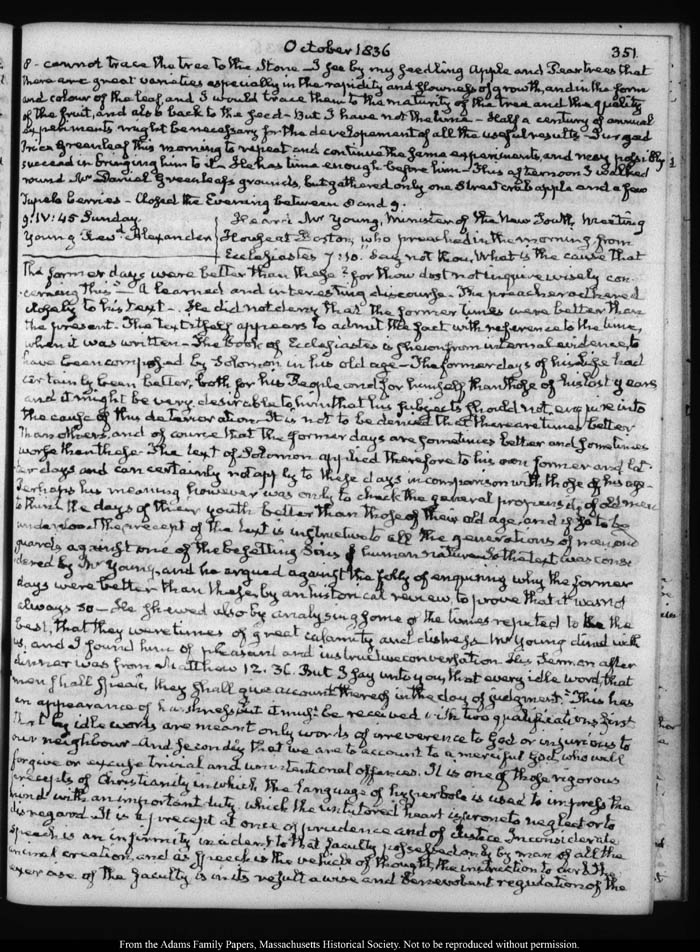 October 1836
351
8 - cannot trace the tree to the Stone - I see by my seedling Apple and Pear trees that
there are great varieties especially in the rapidity and slowness of growth, and in the form
and colour of the leaf, and I would trace them to the maturity of the tree and the quality
of the fruit, and also back to the seed - But I have not the time - Half a century of annual
experiments might be necessary for the developement of all the useful results - I urged
Price Greenleaf this morning to repeat and continue the same experiments, and may possibly
succeed in bringing him to it - He has time enough before him - This afternoon I walked
round Mr Daniel Greenleaf's grounds, but gathered only one Street crab apple and a few
Tupelo berries - Closed the Evening between 8 and 9.
9. IV: 45 Sunday.
Young Revd. Alexander
Heard Mr Young, Minister of the New South Meeting
House at Boston, who preached in the morning from
Ecclesiastes 7:10. Say not thou, What is the cause that
the former days were better than these? for thou dost not inquire wisely con-
cerning this" - A learned and interesting discourse. The preacher adhered
closely to his text - He did not deny that the former times were better than
the present. The text itself appears to admit the fact with reference to the time,
when it was written - The book of Ecclesiastes is shewn from internal evidence, to
have been composed by Solomon in his old age - The former days of his life had
certainly been better, both for his People and for himself than those of his last years
and it might be very desirable to him that his subjects should not enquire into
the cause of this deterioration. It is not to be denied that there are times better
than others, and of course that the former days are sometimes better and sometimes
worse than these - The text of Solomon applied therefore to his own former and lat-
ter days and can certainly not apply to these days in comparison with those of his age -
Perhaps his meaning however was only to check the general propensity of old men
to think the days of their youth better than those of their old age, and if so to be
understood the precept of the text is instructive to all the generations of men, and
guards against one of the besetting Sins of human nature. So the text was consi-
dered by Mr Young, and he argued against the folly of enquiring why the former
days were better than these, by an historical review, to prove that it was not
always so - He shewed also by analysing some of the times reputed to be the
best, that they were times of great calamity and distress - Mr Young dined with
us, and I found him of pleasant and instructive conversation. His Sermon after
dinner was from Matthew 12. 36. But I say unto you, that every idle word, that
men shall speak, they shall give account thereof in the day of judgment." This has
an appearance of harshness but it must be received with two qualifications. First
that by idle words are meant only words of irreverence to God or injurious to
our neighbour - And secondly that we are to account to a merciful God, who will
forgive or excuse trivial and unintentional offences. It is one of those rigorous
precepts of Christianity in which the language of hyperbole is used to impress the
mind with an important duty which the untutored heart is prone to neglect or to
disregard. It is a precept at once of prudence and of Justice. Inconsiderate
speech is an infirmity incident to that faculty possessed only by man of all the
animal creation, and as speech is the vehicle of thought, the instruction to curb the
exercise of the faculty is in its result a wise and benevolent regulation of the
From the Adams Family Papers, Massachusetts Historical Society. Not to be reproduced without permission.